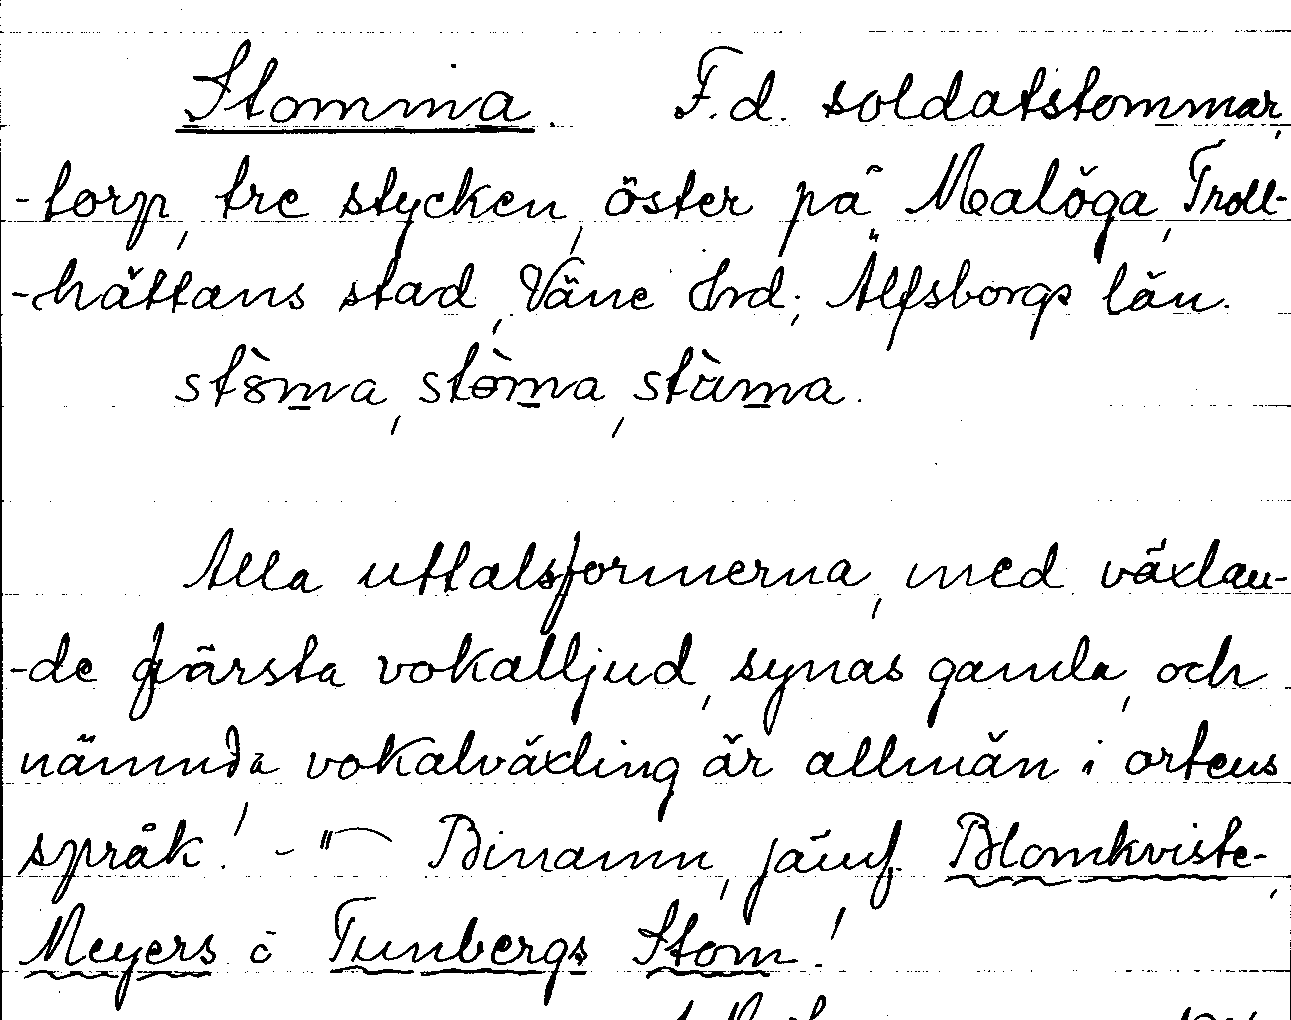 Stomma. F.d. soldatstommar,
-torp, tre stycken, öster på Malöga, Troll-
-hättans stad, Väne hrd; Älfsborgs län.
stòma, stòma, stùma.
Alla uttalsformerna, med växlan-
-de första vokalljud, synas gamla, och
nämnda vokalväxling är allmän i ortens
språk! -"- Binamn, jämf. Blomkviste-,
Meyers o Tunbergs Stom!